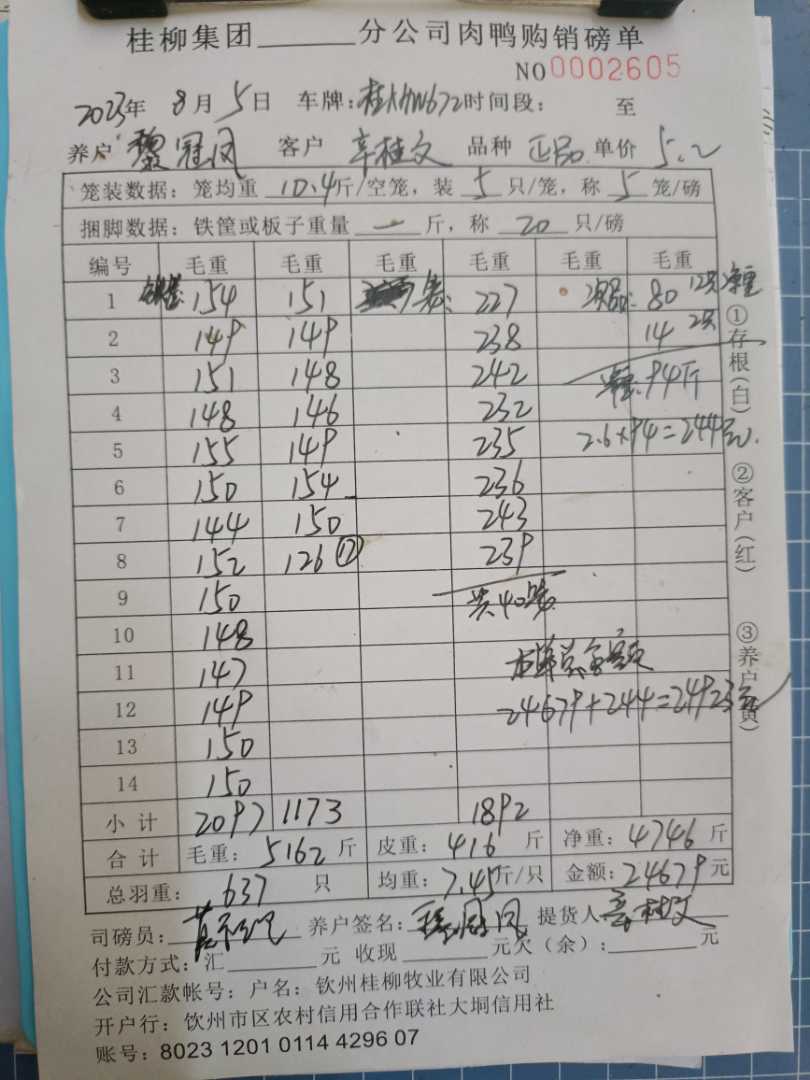 桂柳集团 分公司肉鸭购销磅单
NO 0002605
2023年 8月5日 车牌: 时间段: 至
养户 黎冠凤 客户 辛桂文 品种 正品 单价 5.2
笼装数据: 笼均重 10.4斤/空笼, 装 5 只/笼, 称 5 笼/磅
捆脚数据: 铁筐或板子重量 一 斤, 称 20 只/磅
编号 毛重 毛重 毛重 毛重 毛重 毛重
1 154 151 227 次品: 80 12只
2 149 149 238 14 2只
3 151 148 242 94斤
4 148 146 232
5 155 149 235 2.6×94=244元.
6 150 154 236
7 144 150 243
8 152 126 ⑰ 239
9 150 共40笼
10 148
11 147 本单总金额
12 149 24679+244=24923元
13 150
14 150
小计 2097 1173 1892
合计 毛重: 5162 斤 皮重: 416 斤 净重: 4746 斤
总羽重: 637 只 均重: 7.45斤/只 金额: 24679元
司磅员: 养户签名: 黎冠凤 提货人 辛桂文
付款方式: 汇 元 收现 元欠(余): 元
公司汇款帐号: 户名: 钦州桂柳牧业有限公司
开户行: 钦州市区农村信用合作联社大垌信用社
账号: 8023 1201 0114 4296 07
①存根(白) ②客户(红) ③养户(黄)